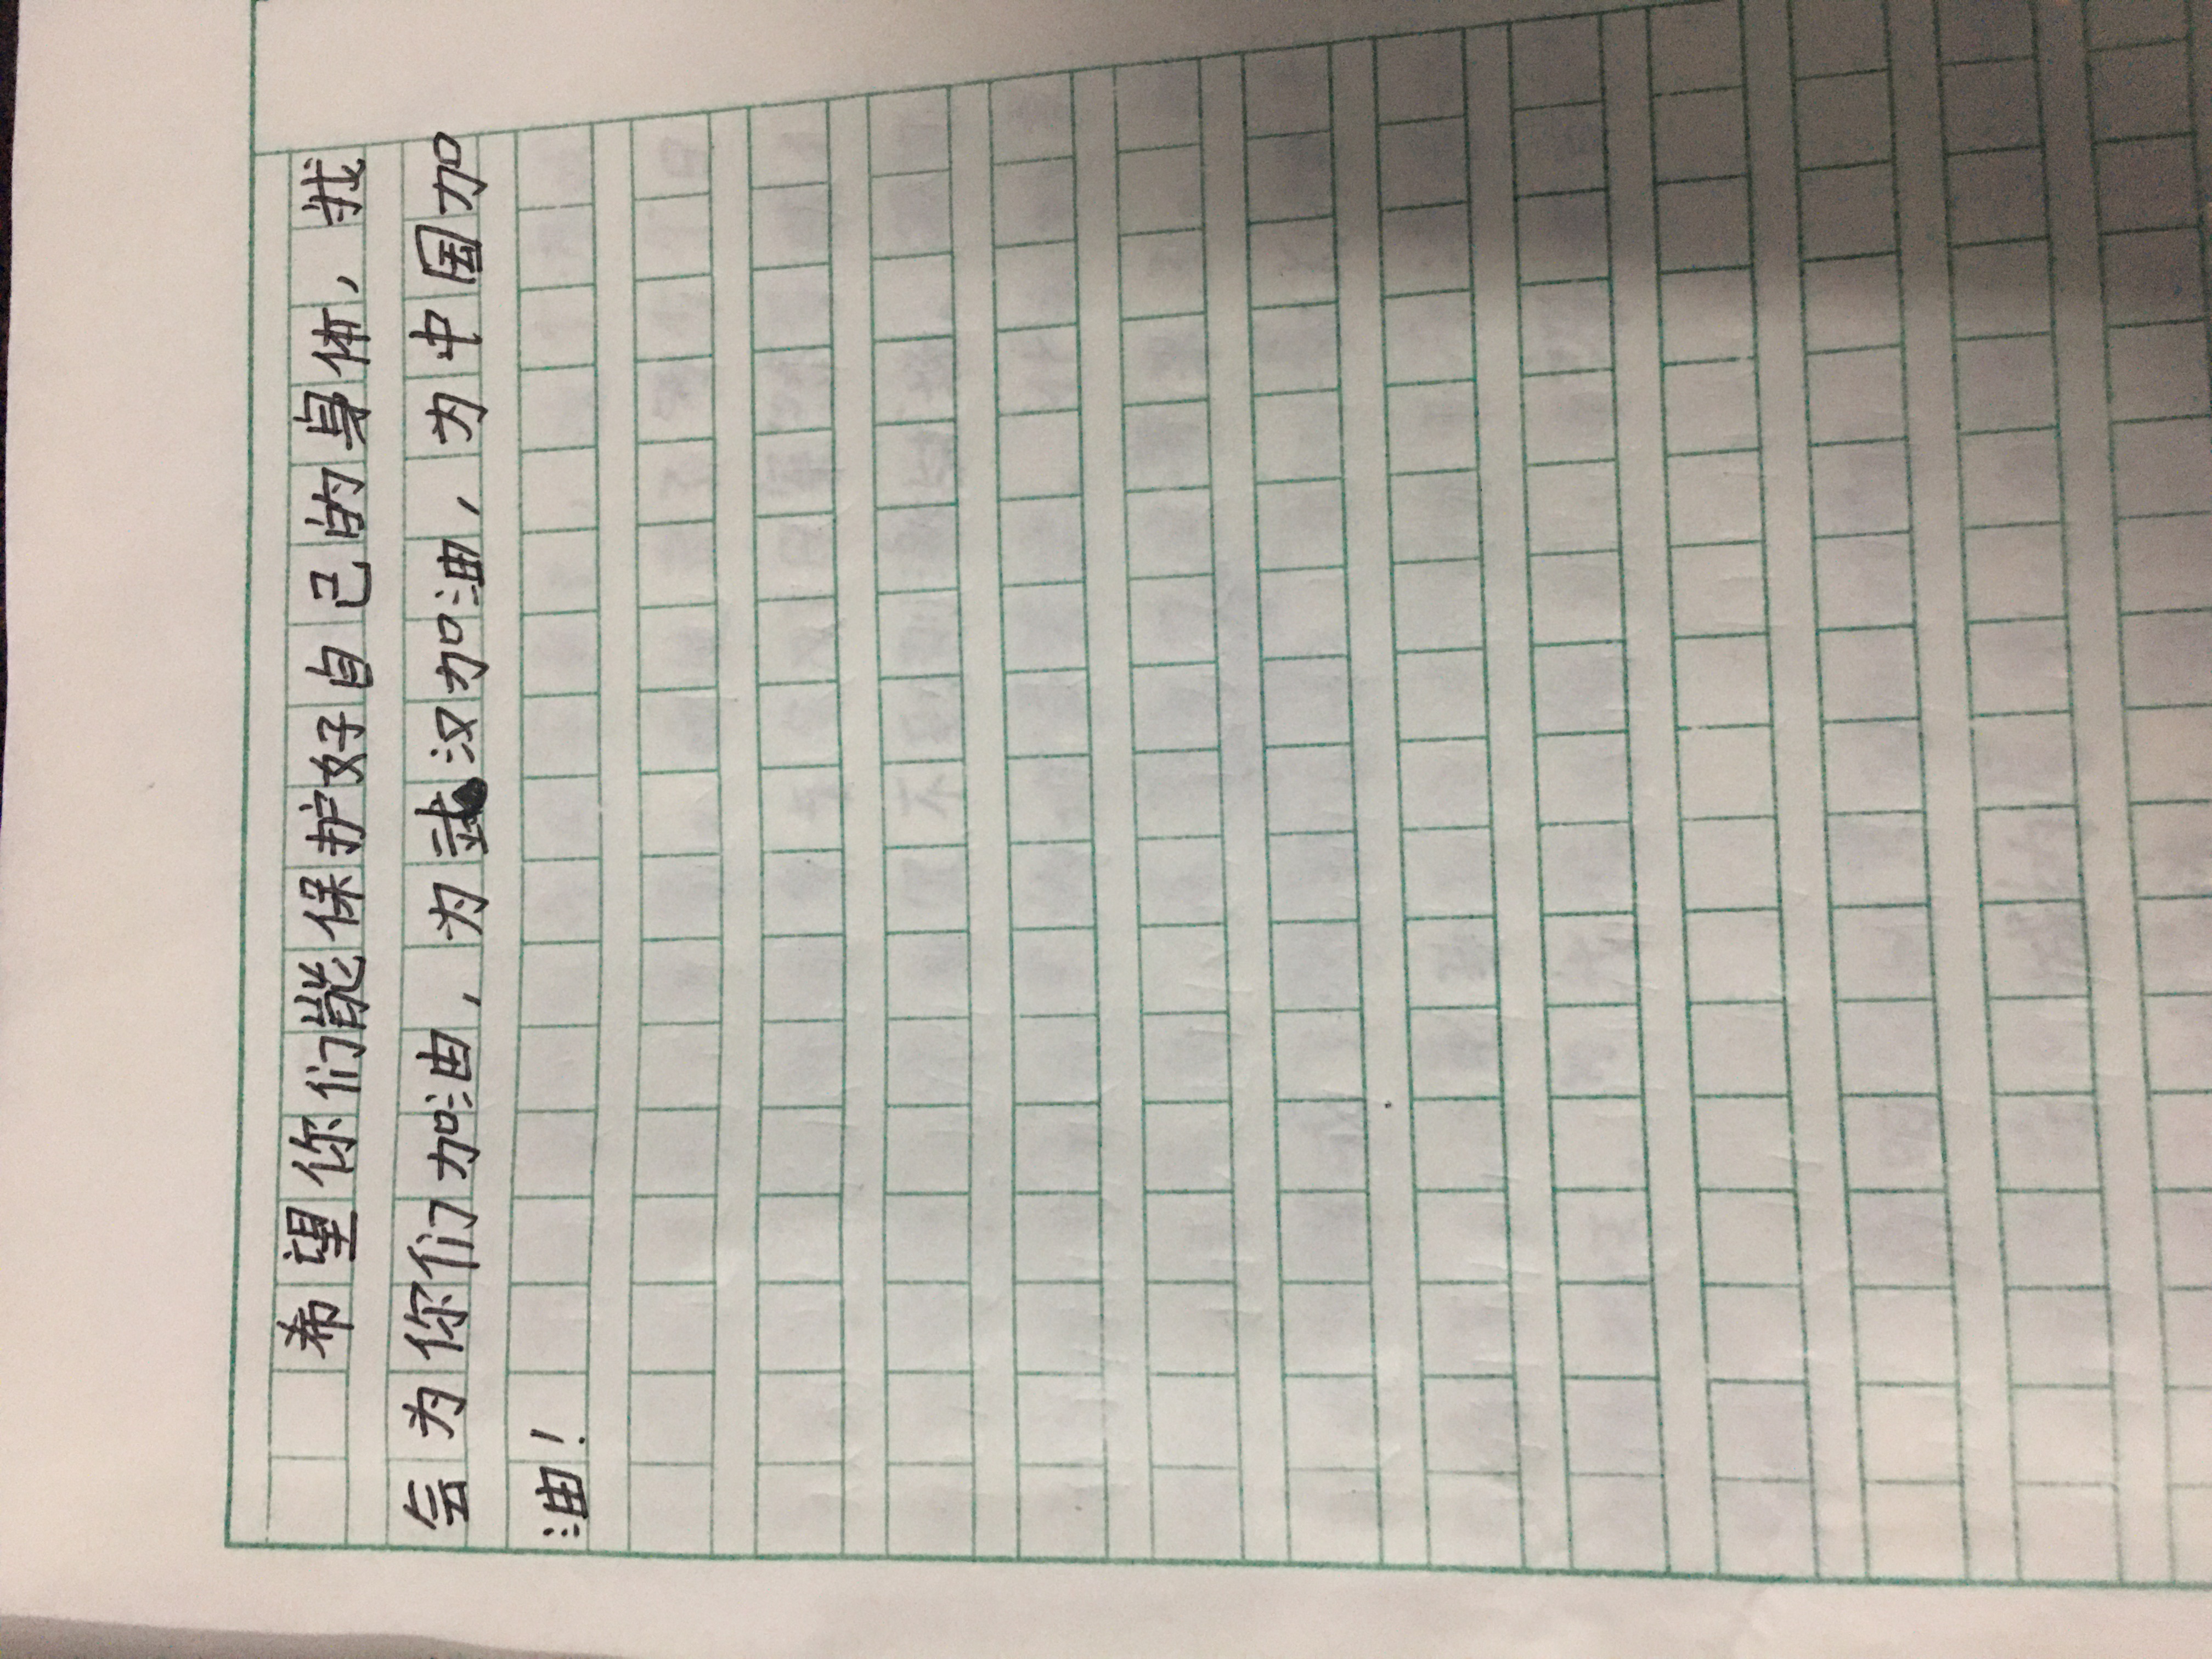 希望你们能保护好自己的身体，我
会为你们加油，为武汉加油，为中国加
油！